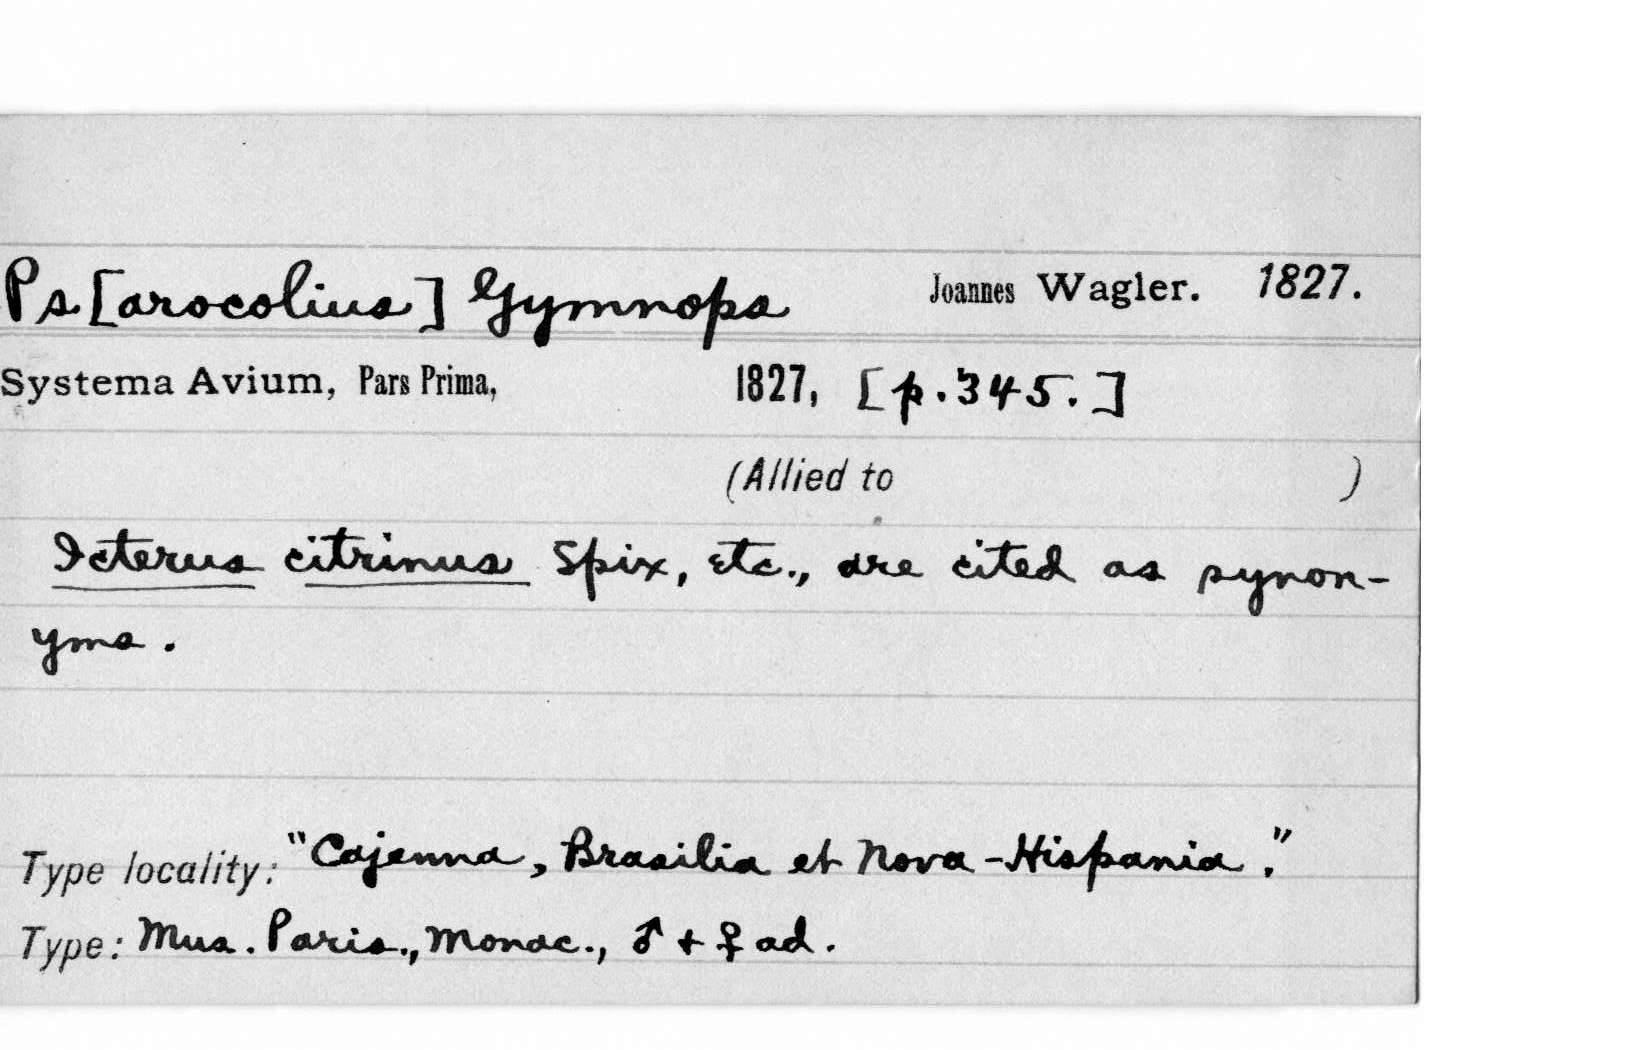 Ps[arocolius] Gymnops Joannes Wagler. 1827.
Systema Avium, Pars Prima, 1827, [p.345.]
(Allied to )
Icterus citrinus Spix, etc., are cited as synon-
yms.
Type locality: "Cajenna, Brasilia et Nova-Hispania."
Type: Mus. Paris., Monac., ♂ + ♀ ad.